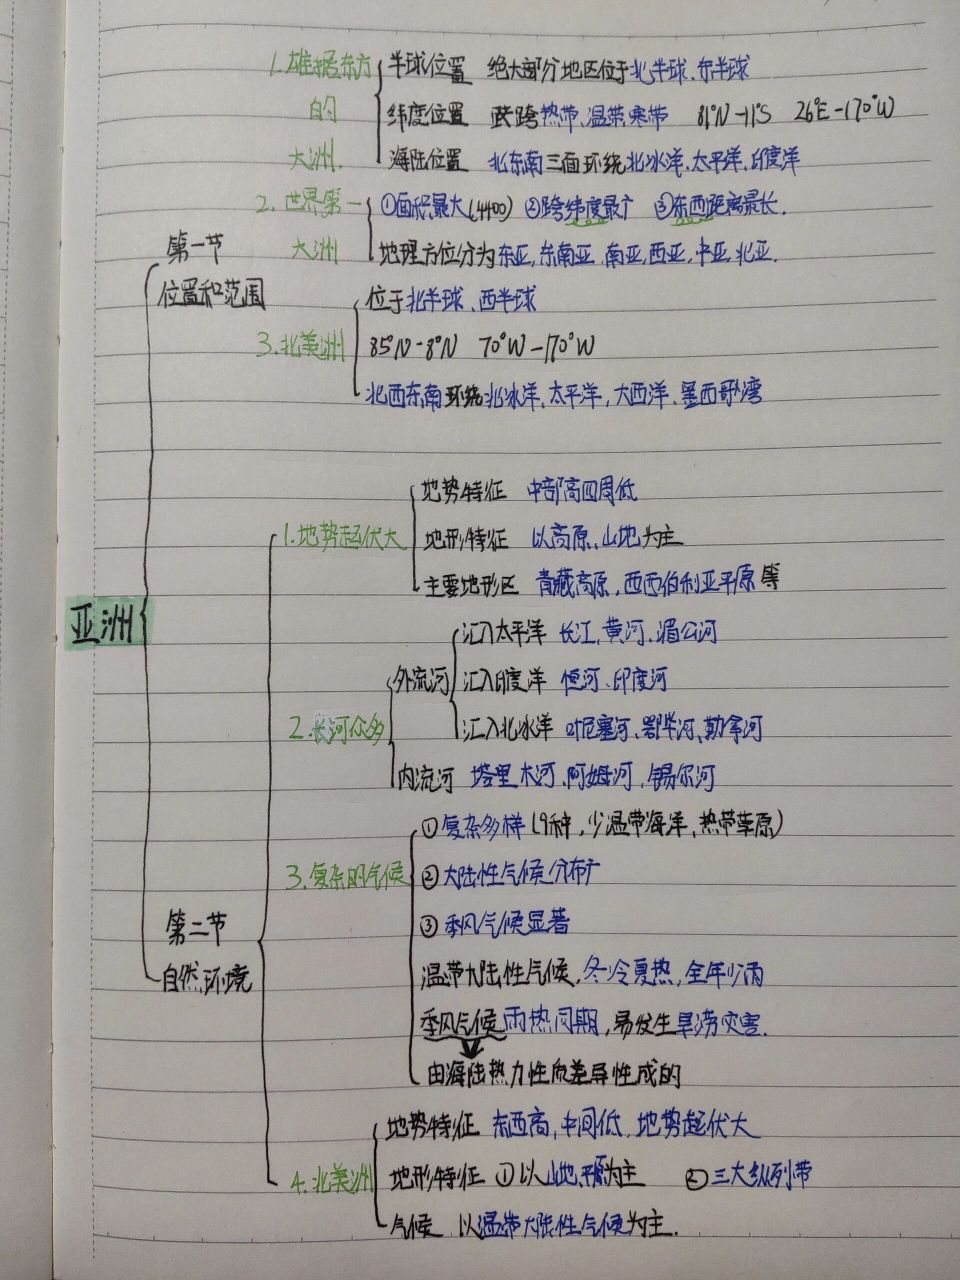 1.雄据东方 半球位置 绝大部分地区位于北半球、东半球
的 纬度位置 跨热带、温带、寒带 81°N-11°S 26°E-170°W
大洲. 海陆位置 北东南三面环绕北冰洋、太平洋、印度洋
2.世界第一 ①面积最大(4400) ②跨纬度最广 ③东西距离最长.
第一节 大洲 地理方位分为东亚,东南亚,南亚,西亚,中亚,北亚.
位置和范围 位于北半球、西半球
3.北美洲 85°N-8°N 70°W-170°W
北西东南环绕北冰洋、太平洋,大西洋、墨西哥湾
地势特征 中部高四周低
1.地势起伏大 地形特征 以高原、山地为主
主要地形区 青藏高原,西西伯利亚平原等
亚洲 汇入太平洋 长江、黄河、湄公河
外流河 汇入印度洋 恒河、印度河
2.长河众多 汇入北冰洋 叶尼塞河、鄂毕河、勒拿河
内流河 塔里木河、阿姆河、锡尔河
①复杂多样(9种,少温带海洋、热带草原)
3.复杂的气候 ②大陆性气候分布广
第二节 ③季风气候显著
自然环境 温带大陆性气候,冬冷夏热,全年少雨
季风气候 雨热同期,易发生旱涝灾害.
由海陆热力性质差异性成的
地势特征 东西高,中间低,地势起伏大
4.北美洲 地形特征 ①以山地,平原为主 ②三大纵列带
气候 以温带大陆性气候为主.